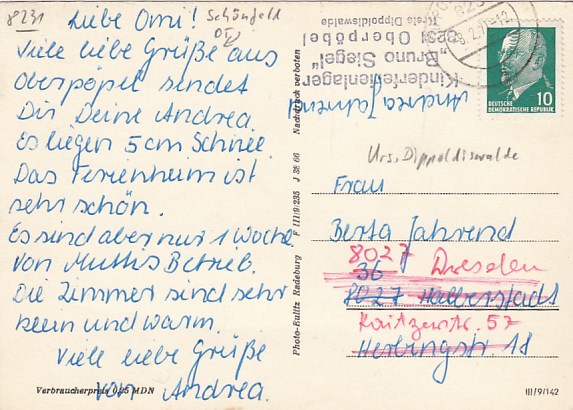 8231
Schönfeld
Liebe Omi!
Viele liebe Grüße aus
Oberpöpel sendet
Dir Deine Andrea.
Es liegen 5 cm Schnee.
Das Ferienheim ist
sehr schön.
Es sind aber nur 1 Woche
von Muttis Betrieb.
Die Zimmer sind sehr
klein und warm.
Viele liebe Grüße
von Andrea.
Verbraucherpreis 0,95 MDN
Nachdruck verboten
Photo-Bulitz Madeburg F III/9/235 J 38 66
Kinderferienlager
"Bruno Siegel"
8231 Oberpöbel
Kreis Dippoldiswalde
DEUTSCHE
DEMOKRATISCHE REPUBLIK
10
Andrea Jahrend
Krs. Dippoldiswalde
Frau
Berta Jahrend
8027 Dresden
36
8027 Halberstadt
Kaitzerstr. 57
Herbingstr. 18
III/9/142